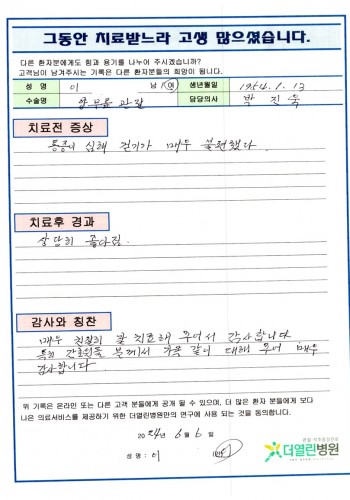 그동안 치료받느라 고생 많으셨습니다.
다른 환자분에게도 힘과 용기를 나누어 주시겠습니까?
고객님이 남겨주시는 기록은 다른 환자분들의 희망이 됩니다.
성 명 이 남 / 여 생년월일 1954. 1. 13
수술명 양 무릎 관절 담당의사 박 진 욱
치료전 증상
통증이 심해 걷기가 매우 불편했다.
치료후 경과
상당히 좋아짐.
감사와 칭찬
매우 친절히 잘 치료해 주어서 감사합니다
특히 간호원들 분께서 가족 같이 대해 주어 매우
감사합니다
위 기록은 온라인 또는 다른 고객 분들에게 공개 될 수 있으며, 더 많은 환자 분들에게 보다
나은 의료서비스를 제공하기 위한 더열린병원만의 연구에 사용 되는 것을 동의합니다.
2024년 6월 6일
성 명 : 이 (인)
관절·척추 중점진료
더열린병원